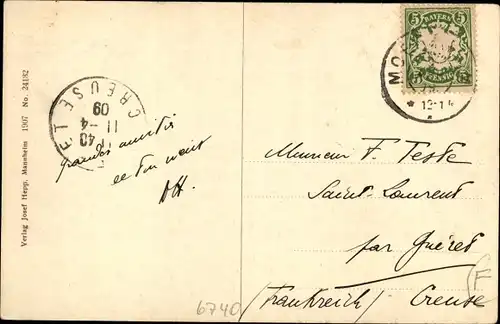 5 BAYERN 5
PFENNIG
MO
12-1
CREUSE
ET
11-4
09
40
Verlag Josef Hepp, Mannheim 1907 No. 24182
Grandes amitiés
et
AH.
Monsieur F. Teste
Saint-Laurent
par Guéret
(Frankreich) Creuse
F
6740